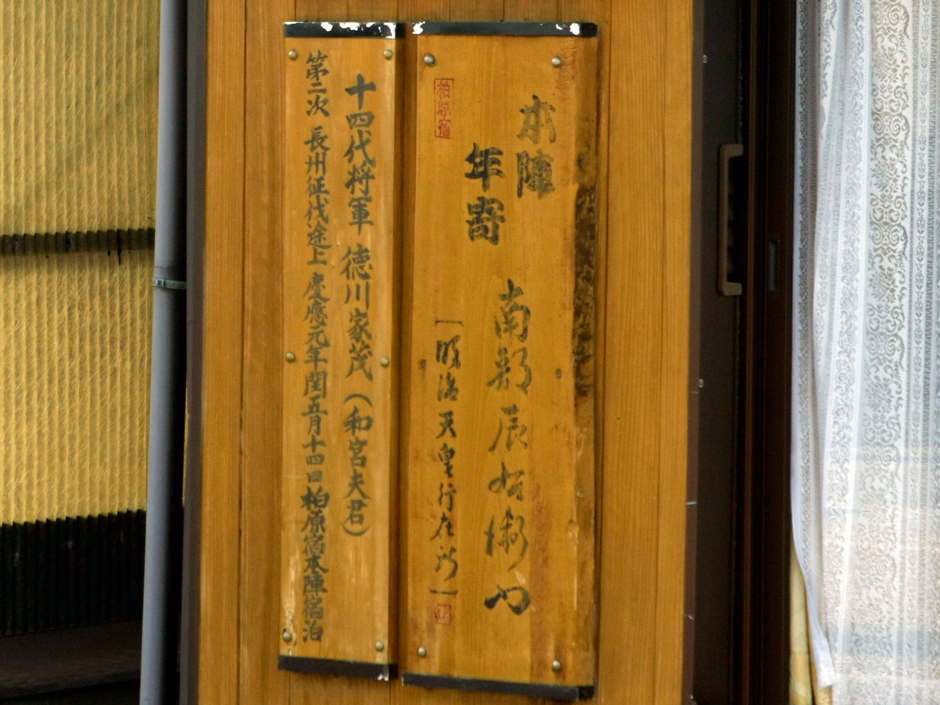 本陣
年寄
南部辰右衛門
(明治天皇行在所)
柏原宿
十四代将軍 徳川家茂(和宮夫君)
第二次 長州征代途上 慶應元年閏五月十四日柏原宿本陣宿泊